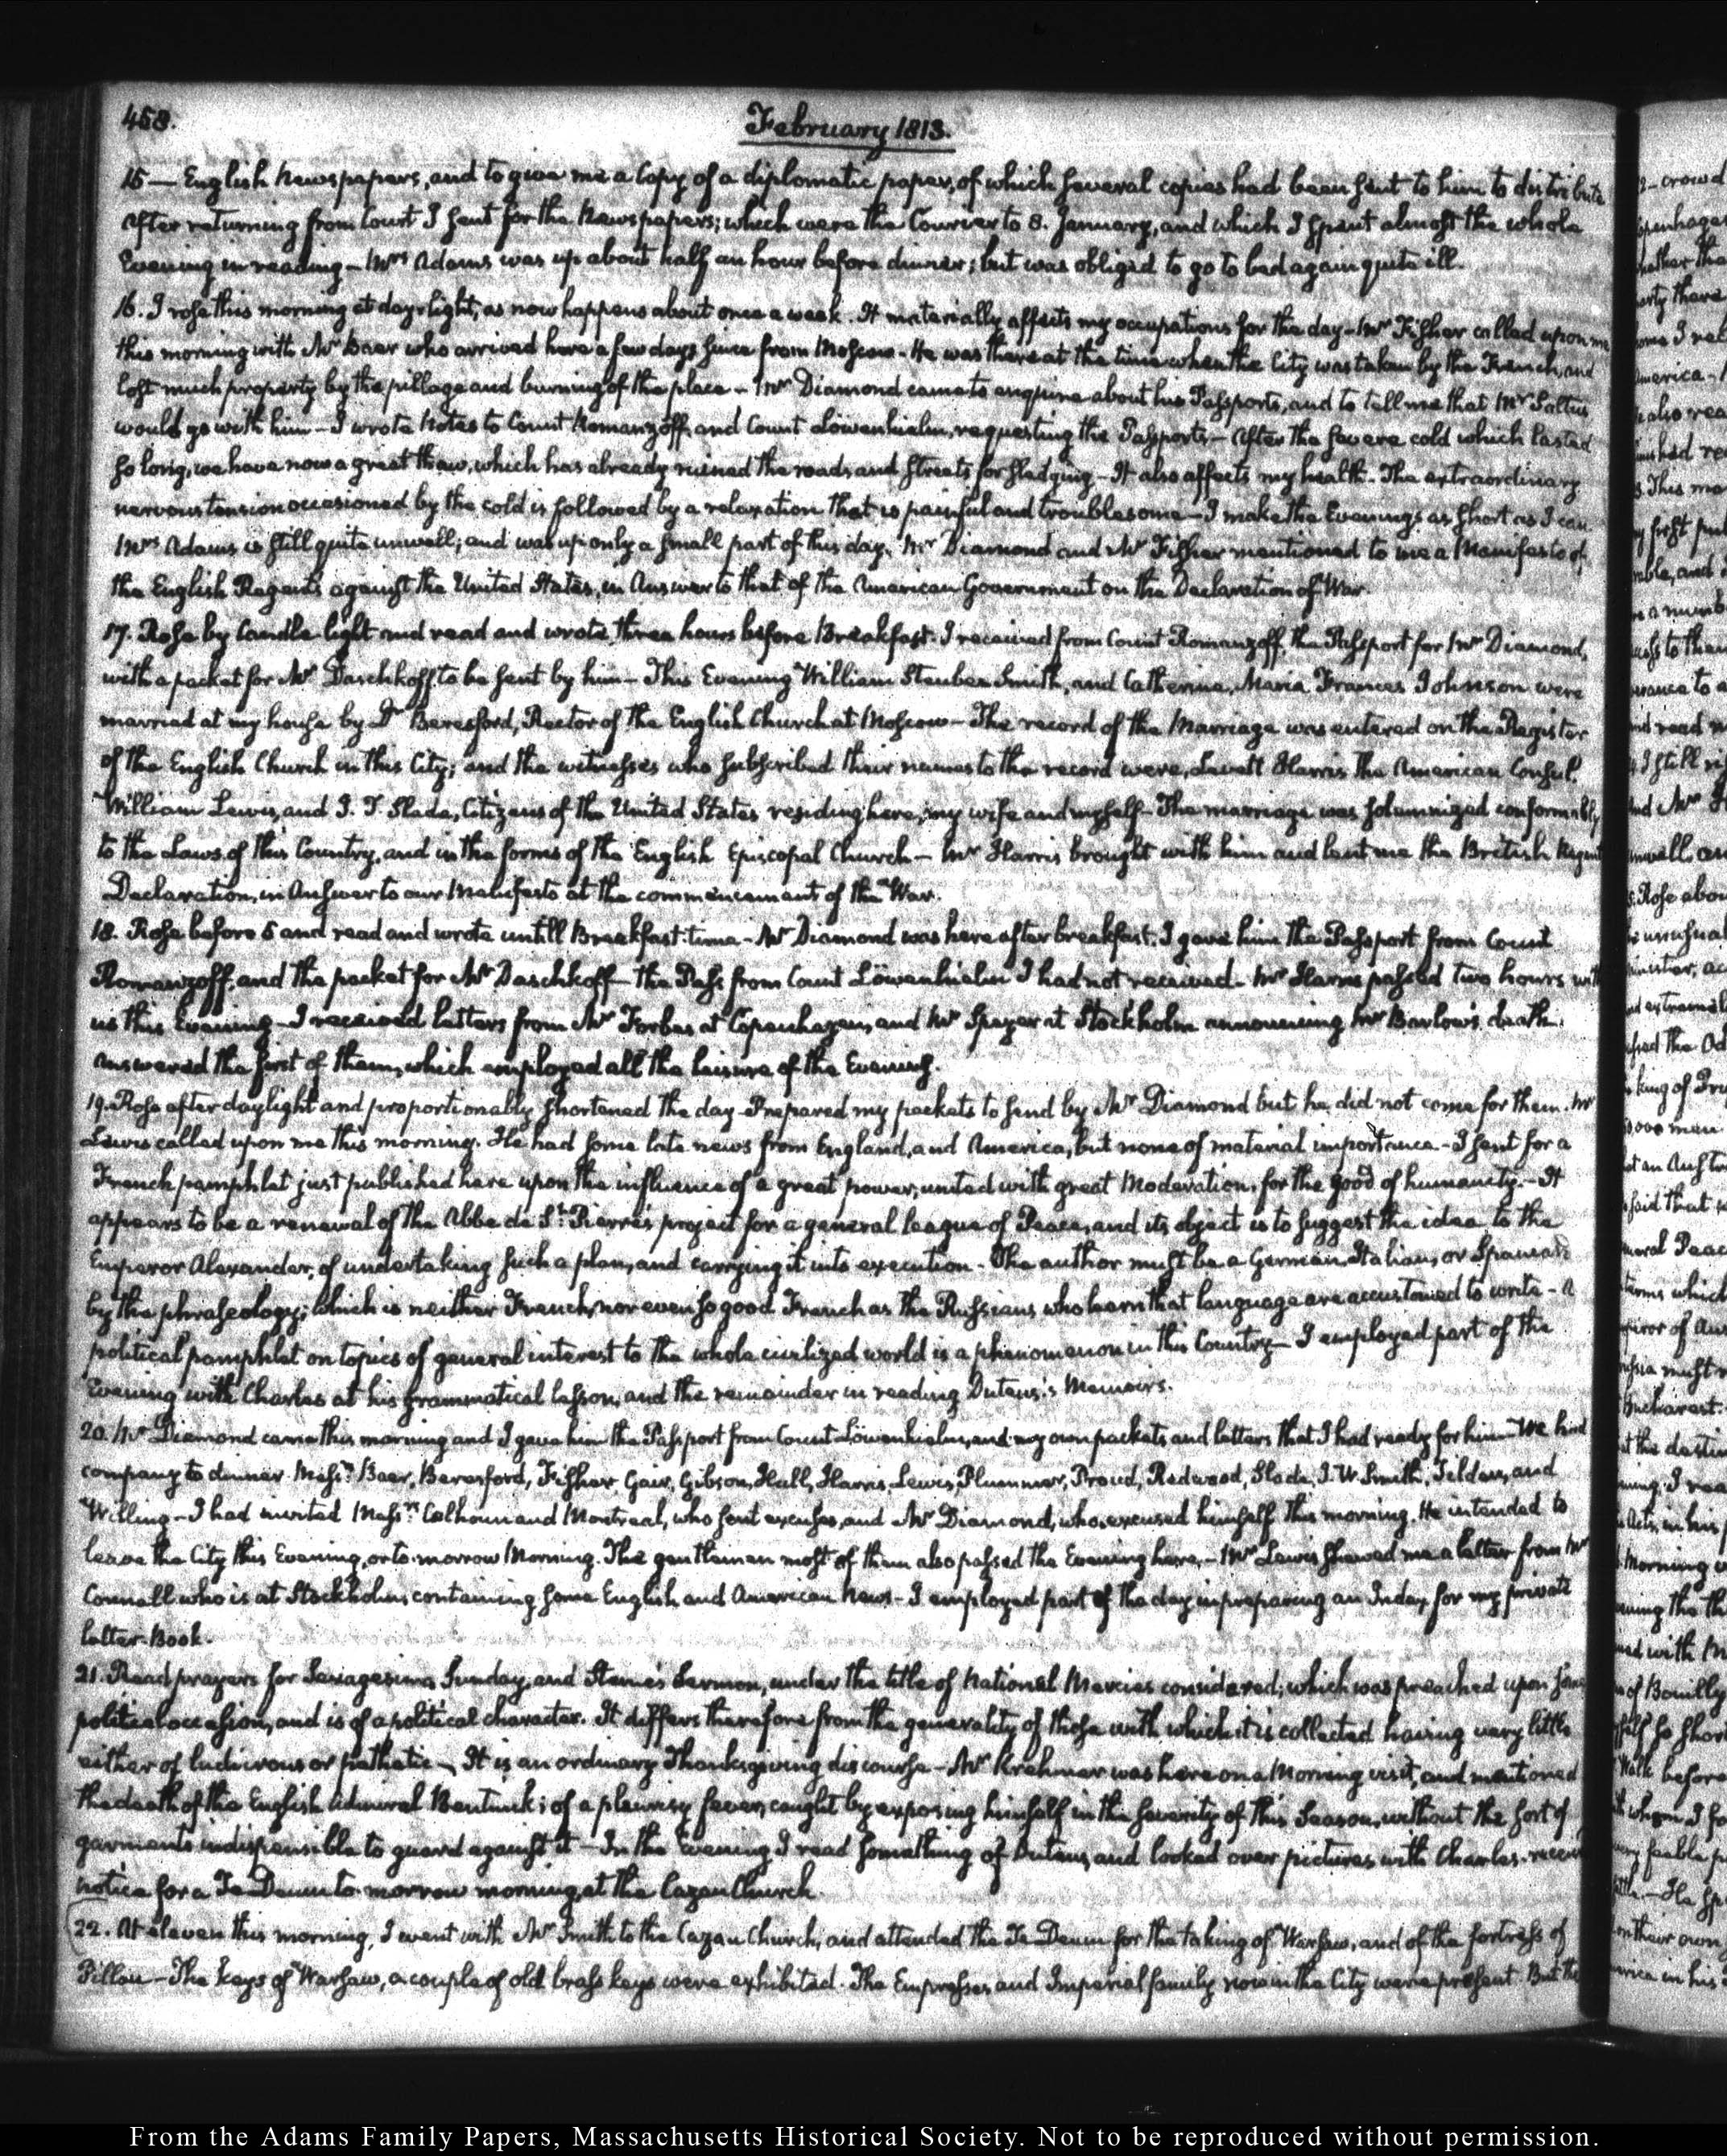 458.
February 1813.
15 — English Newspapers, and to give me a Copy of a diplomatic paper, of which several copies had been sent to him to distribute
After returning from Court I sent for the Newspapers; which were the Courier to 8. January, and which I spent almost the whole
Evening in reading — Mrs Adams was up about half an hour before dinner; but was obliged to go to bed again quite ill.
16. I rose this morning at day-light, as now happens about once a week. It materially affects my occupations for the day — Mr Fisher called upon me
this morning with Mr Baer who arrived here a few days since from Moscow — He was there at the time when the City was taken by the French, and
lost much property by the pillage and burning of the place — Mr Diamond came to enquire about his Passports, and to tell me that Mr Saltus
would go with him — I wrote Notes to Count Romanzoff, and Count Löwenhielm, requesting the Passports — After the severe cold which lasted
so long, we have now a great thaw, which has already ruined the roads and streets for sledging — It also affects my health. The extraordinary
nervous tension occasioned by the cold is followed by a relaxation that is painful and troublesome — I make the Evenings as short as I can
Mrs Adams is still quite unwell; and was up only a small part of this day. Mr Diamond and Mr Fisher mentioned to me a Manifesto of,
the English Regent's against the United States, in Answer to that of the American Government on the Declaration of War.
17. Rose by Candle-light and read and wrote three hours before Breakfast. I received from Count Romanzoff, the Passport for Mr Diamond,
with a packet for Mr Daschkoff, to be sent by him — This Evening William Steuben Smith, and Catherine, Maria Frances Johnson were
married at my house by Dr Beresford, Rector of the English Church at Moscow — The record of the Marriage was entered on the Register
of the English Church in this City; and the witnesses who subscribed their names to the record were, Levett Harris the American Consul,
William Lewis, and J. J. Slade, Citizens of the United States residing here, my wife and myself — The marriage was solemnized conformably
to the Laws of this Country, and in the forms of the English Episcopal Church — Mr Harris brought with him and lent me the British Regent
Declaration, in Answer to our Manifesto at the commencement of the War.
18. Rose before 5 and read and wrote untill Breakfast-time — Mr Diamond was here after breakfast. I gave him the Passport from Count
Romanzoff, and the packet for Mr Daschkoff — the Pass from Count Löwenhielm I had not received — Mr Harris passed two hours with
us this Evening — I received letters from Mr Forbes at Copenhagen, and Mr Speyer at Stockholm announcing Mr Barlow's death.
answered the first of them, which employed all the leisure of the Evening.
19. Rose after daylight and proportionably shortened the day — Prepared my packets to send by Mr Diamond but he did not come for them. Mr
Lewis called upon me this morning. He had some late news from England, and America, but none of material importance — I sent for a
French pamphlet just published here upon the influence of a great power, united with great Moderation, for the good of humanity. — It
appears to be a renewal of the Abbé de St. Pierre's project for a general league of Peace, and its object is to suggest the idea to the
Emperor Alexander, of undertaking such a plan, and carrying it into execution — The author must be a German, Italian, or Spaniard
by the phraseology; which is neither French, nor even so good French as the Russians who learn that language are accustomed to write — A
political pamphlet on topics of general interest to the whole civilized world is a phenomenon in this Country — I employed part of the
Evening with Charles at his grammatical lesson, and the remainder in reading Dutens's Memoirs.
20. Mr Diamond came this morning and I gave him the Passport from Count Löwenhielm, and my own packets and letters that I had ready for him — We had
company to dinner. Messrs Baer, Beresford, Fisher, Gair, Gibson, Hall, Harris, Lewis, Plummer, Proud, Redwood, Slade, J. W. Smith, Tilden, and
Willing — I had invited Messrs Calhoun and Montreal, who sent excuses, and Mr Diamond, who excused himself this morning. He intended to
leave the City this Evening, or to-morrow Morning. The gentlemen most of them also passed the Evening here, — Mr Lewis shewed me a letter from Mr
Connell who is at Stockholm, containing some English and American News — I employed part of the day in preparing an Index for my private
letter-Book.
21. Read prayers for Sexagesima Sunday, and Sterne's Sermon, under the title of National Mercies considered; which was preached upon some
political occasion, and is of a political character. It differs therefore from the generality of those with which it is collected having very little
either of ludicrous or pathetic — It is an ordinary Thanksgiving discourse — Mr Krehmer was here on a Morning visit, and mentioned
the death of the English Admiral Bentinck; of a pleurisy fever, caught by exposing himself in the severity of this Season, without the sort of
garments indispensible to guard against it — In the Evening I read something of Dutens, and looked over pictures with Charles. received
notice for a Te Deum to-morrow morning, at the Cazan Church.
22. At eleven this morning, I went with Mr Smith to the Cazan Church, and attended the Te Deum for the taking of Warsaw, and of the fortress of
Pillau — The keys of Warsaw, a couple of old brass keys were exhibited. The Empresses and Imperial family now in the City were present. But the
From the Adams Family Papers, Massachusetts Historical Society. Not to be reproduced without permission.